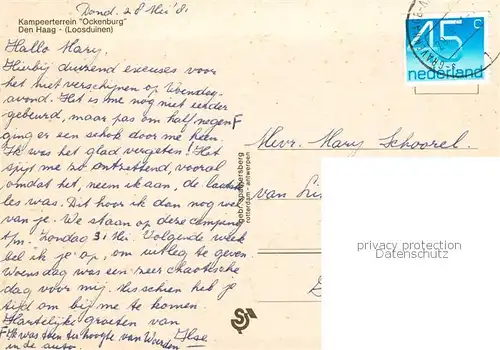 Dond. 28 Mei '81
Kampeerterrein "Ockenburg"
Den Haag - (Loosduinen)
Hallo Mary,
Hierbij duizend excuses voor
het niet verschijnen op Woensdag-
avond. Het is me nog niet eerder
gebeurd, maar pas om half negen F
ging er een schok door me heen.
Ik was het glad vergeten! Het
spijt me zo ontzettend, vooral
omdat het, neem ik aan, de laatste
les was. Dit hoor ik dan nog wel
van je. We staan op deze camping
t/m Zondag 31 Mei. Volgende week
bel ik je op, om uitleg te geven.
Woensdag was een zeer chaotische
dag voor mij. Misschien heb je
tijd om bij me te komen.
Hartelijke groeten van
Ilse
F Ik was toen ter hoogte van Woerden
in de auto.
gebr. spanjersberg
rotterdam - antwerpen
45 c
nederland
Mevr. Mary Schoorel.
van
privacy protection
Datenschutz